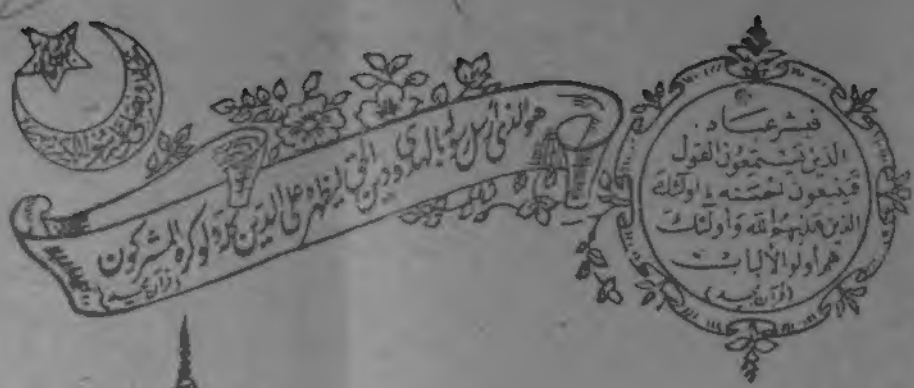 هو الذی أرسل رسوله بالهدی و دین الحق لیظهره علی الدین کله ولو کره المشرکون
(قرآن مجید)
فبشر عباد
الذین یستمعون القول
فیتبعون أحسنه أولئك
الذین هدیهم الله وأولئك
هم أولوا الألباب
(قرآن مجید)